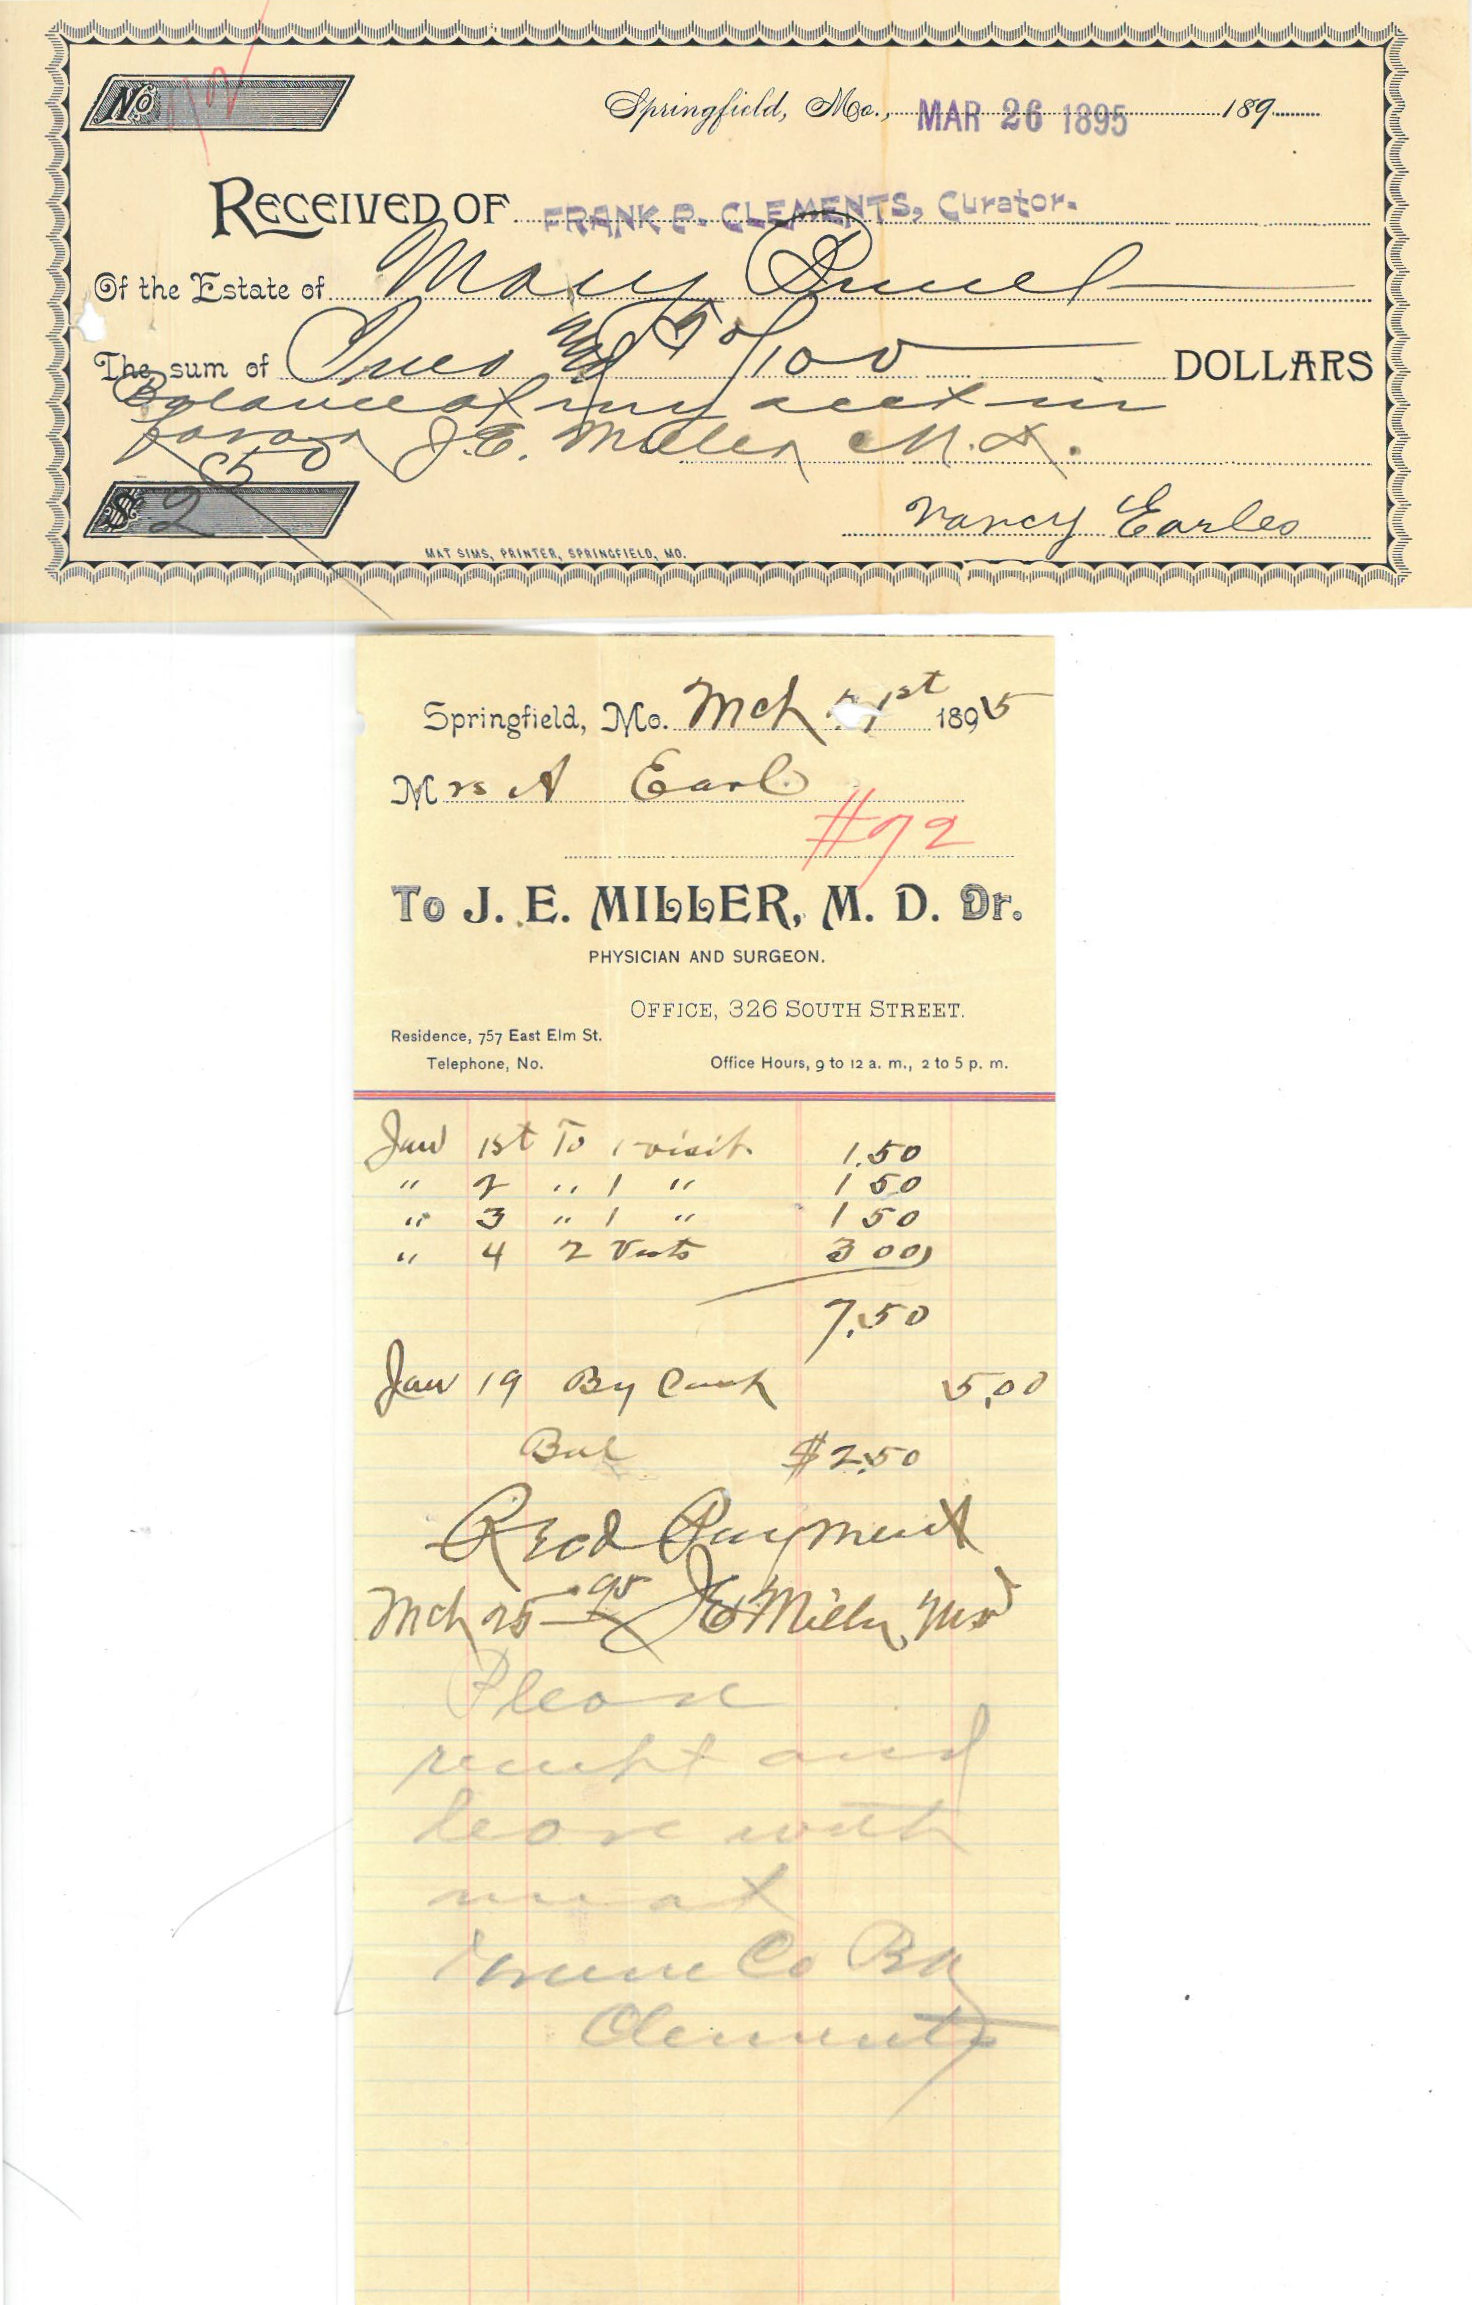 No 72
Springfield, Mo., MAR 26 1895 189
RECEIVED OF FRANK P. CLEMENTS, Curator.
Of the Estate of Mary
The sum of Two and 50/100 DOLLARS
Balance of my acct in
favor J. E. Miller M. D.
$ 2 50
Nancy Earles
MAT SIMS, PRINTER, SPRINGFIELD, MO.
Springfield, Mo. Mch 1st 1895
Mrs A Earl
#72
To J. E. MILLER, M. D. Dr.
PHYSICIAN AND SURGEON.
OFFICE, 326 SOUTH STREET.
Residence, 757 East Elm St.
Telephone, No. Office Hours, 9 to 12 a. m., 2 to 5 p. m.
Jan 1st To 1 visit 1.50
" 2 " 1 " 1 50
" 3 " 1 " 1 50
" 4 2 Vists 3 00
7.50
Jan 19 By Cash 5.00
Bal $2.50
Recd Payment
Mch 25 - 95 J E Miller MD
Please
receipt and
leave with
me at
Greene Co Bk
Clements